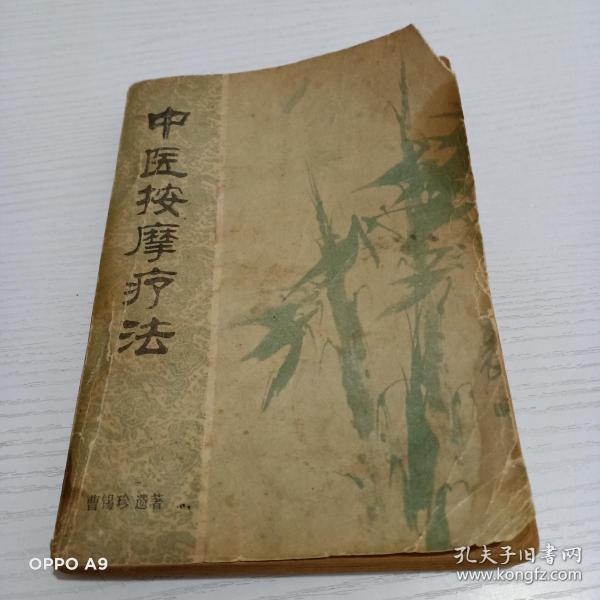 中医按摩疗法
曹锡珍 遗著
OPPO A9
孔夫子旧书网
www.kongfz.com